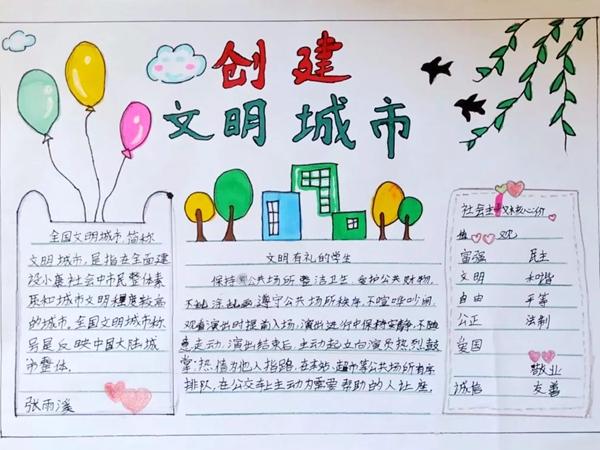 创建
文明城市
全国文明城市,简称
文明城市,是指在全面建
设小康社会中市民整体素
质和城市文明程度较高
的城市。全国文明城市称
号是反映中国大陆城
市整体.
张雨溪
文明有礼的学生
保持公共场所整洁卫生、爱护公共财物,
不乱涂乱画遵守公共场所秩序,不喧哗吵闹,
观看演出时提前入场,演出进行中保持安静,不随
意走动,演出结束后,主动起立向演员热烈鼓
掌;热情为他人指路,在车站、超市等公共场所有序
排队,在公交车上主动为需要帮助的人让座。
社会主义核心价
值观
富强 民主
文明 和谐
自由 平等
公正 法制
爱国
敬业
诚信 友善